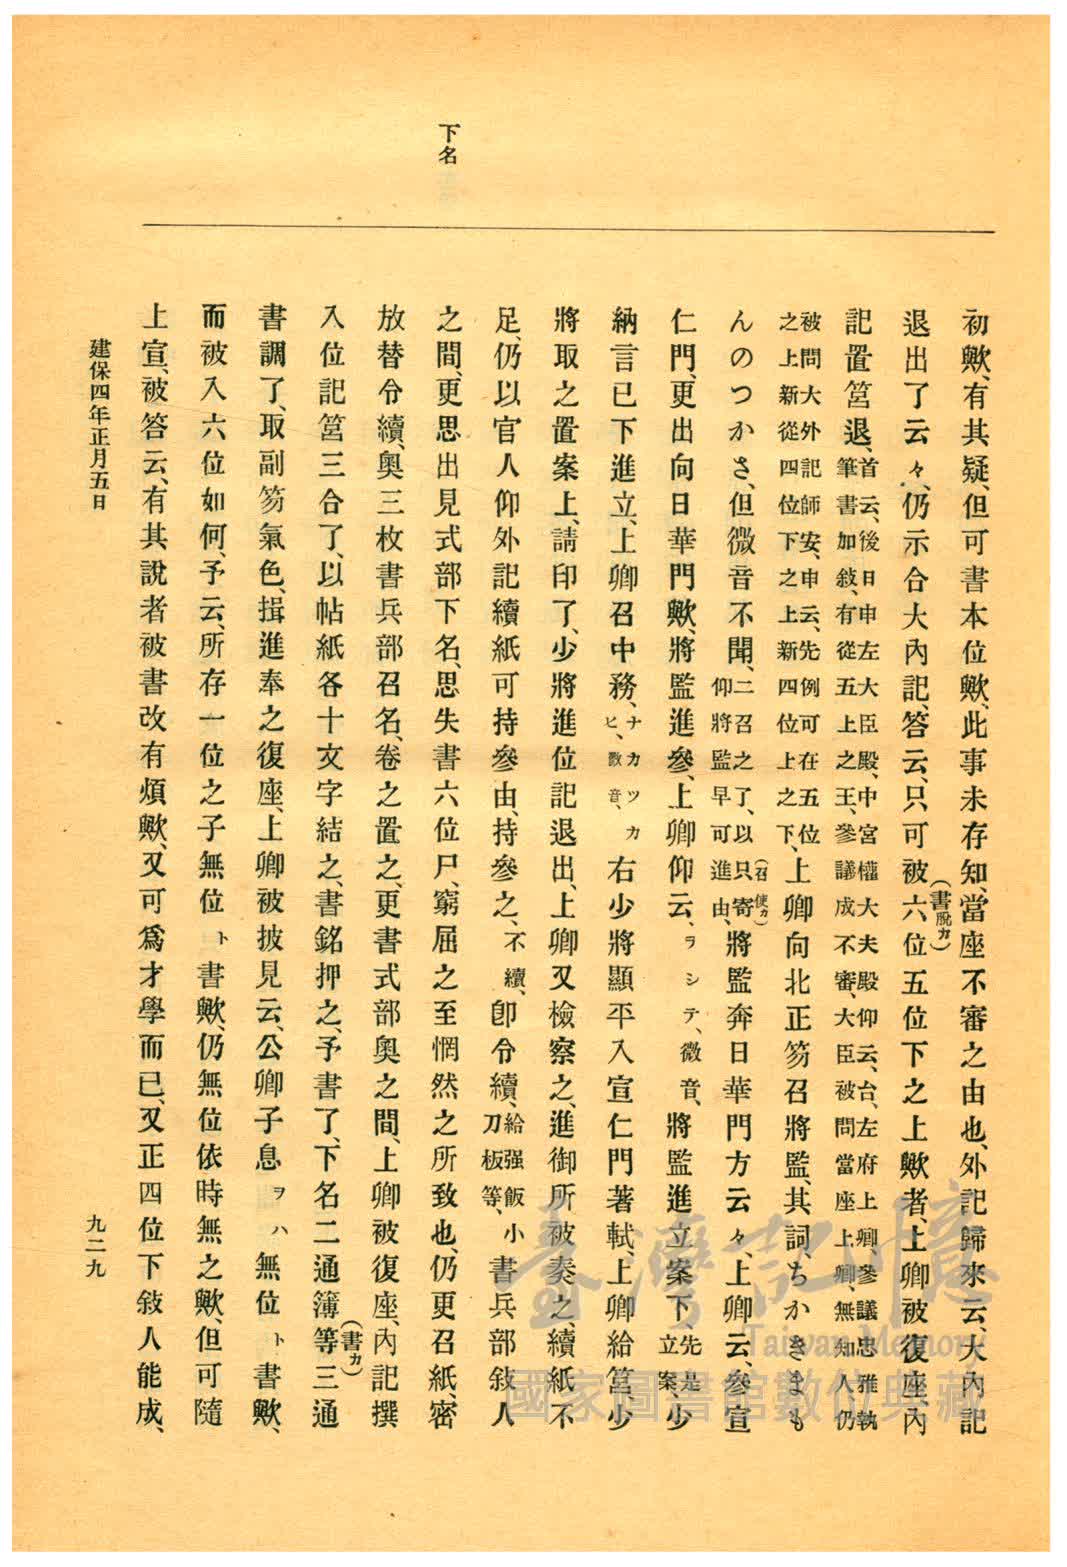 下名
初歟、有其疑、但可書本位歟、此事未存知、當座不審之由也、外記歸來云、大內記
退出了云々、仍示合大內記、答云、只可被(書脫カ)六位五位下之上歟者、上卿被復座、內
記置筥退、首云、後日申左大臣殿、中宮權大夫殿仰云、台、左府上卿參議忠雅執
筆書加敍、有從五上之王、參議成不審、大臣被問當座上卿、無知人仍
被問大外記師安、申云、先例可在五位
之上新從四位下之上新四位上之下、上卿向北正笏召將監、其詞、ちかきまも
んのつかさ、但微音不聞、二召之了、以只寄(召使カ)
仰將監早可進由、將監奔日華門方云々、上卿云、參宣
仁門、更出向日華門歟、將監進參、上卿仰云、ヲシテ、微音、將監進立案下、先是
立案、少
納言已下進立、上卿召中務、ナカツカ
ヒ、微音、右少將顯平入宣仁門著軾、上卿給筥、少
將取之置案上、請印了、少將進位記退出、上卿又檢察之、進御所被奏之、續紙不
足、仍以官人仰外記續紙可持參由、持參之、不續、卽令續、給强飯小
刀板等、書兵部敍人
之間、更思出見式部下名、思失書六位尸、窮屈之至惘然之所致也、仍更召紙、密
放替令續、奧三枚書兵部召名、卷之置之、更書式部奧之間、上卿被復座、內記撰
入位記筥三合了、以帖紙各十文字結之、書銘押之、予書了、下名二通簿等(書カ)三通
書調了、取副笏氣色、揖進奉之復座、上卿被披見云、公卿子息ヲハ無位ト書歟、
而被入六位如何、予云、所存一位之子無位ト書歟、仍無位依時無之歟、但可隨
上宣、被答云、有其說者被書改有煩歟、又可爲才學而已、又正四位下敍人能成、
建保四年正月五日
九二九
臺灣記憶
Taiwan Memory
國家圖書館數位典藏